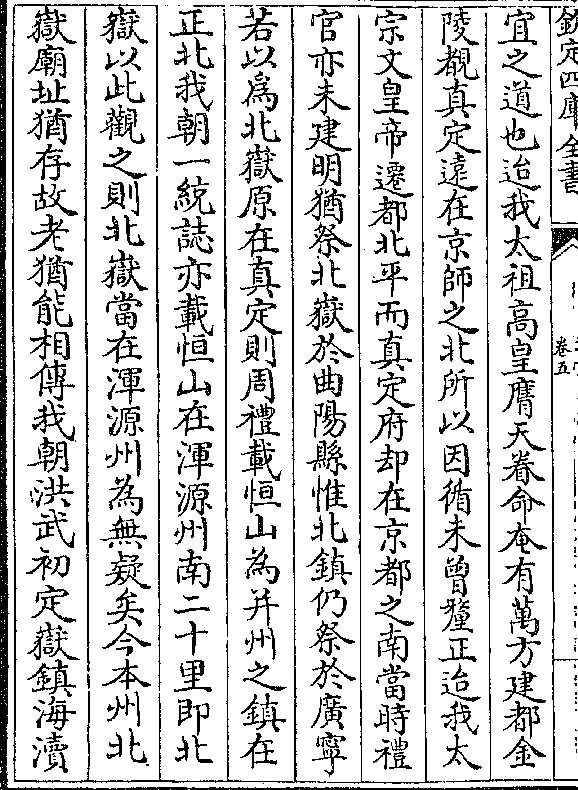 欽定四庫全書
卷五
宜之道也迨我太祖高皇膺天眷命奄有萬方建都金
陵覩真定遠在京師之北所以因循未曾釐正迨我太
宗文皇帝遷都北平而真定府却在京都之南當時禮
官亦未建明猶祭北嶽於曲陽縣惟北鎮仍祭於廣寧
若以為北嶽原在真定則周禮載恒山為并州之鎮在
正北我朝一統誌亦載恒山在渾源州南二十里即北
嶽以此觀之則北嶽當在渾源州為無疑矣今本州北
嶽廟址猶存故老猶能相傳我朝洪武初定嶽鎮海瀆